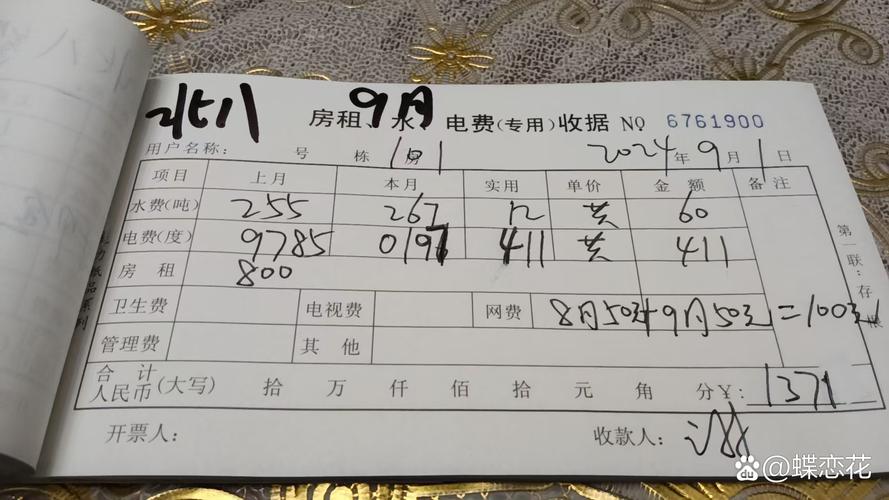 9月
房租、水、电费(专用)收据 NO. 6761900
用户名称: 号 栋 101 房 2024年9月1日
项目 上月 本月 实用 单价 金额 备注
水费(吨) 255 267 12 60
电费(度) 9785 0196 411 411
房租 800
卫生费 电视费 网费 8月50元+9月50元=100元
管理费 其他
合计
人民币(大写) 拾 万 仟 佰 拾 元 角 分¥: 1371
开票人: 收款人:
第一联:存根
@蝶恋花